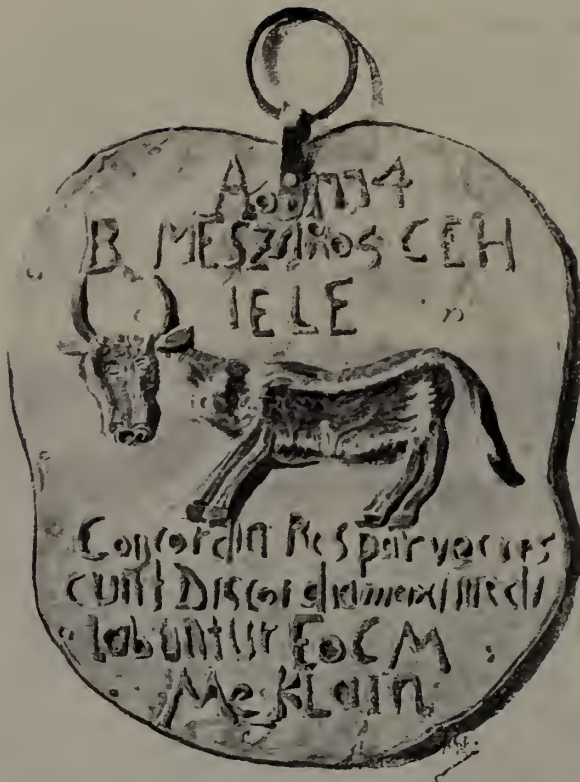 B MESZAROS CEH
IELE
Concordia Res parvae cres
cunt Discordia di
labuntur FoCM
Me KLain